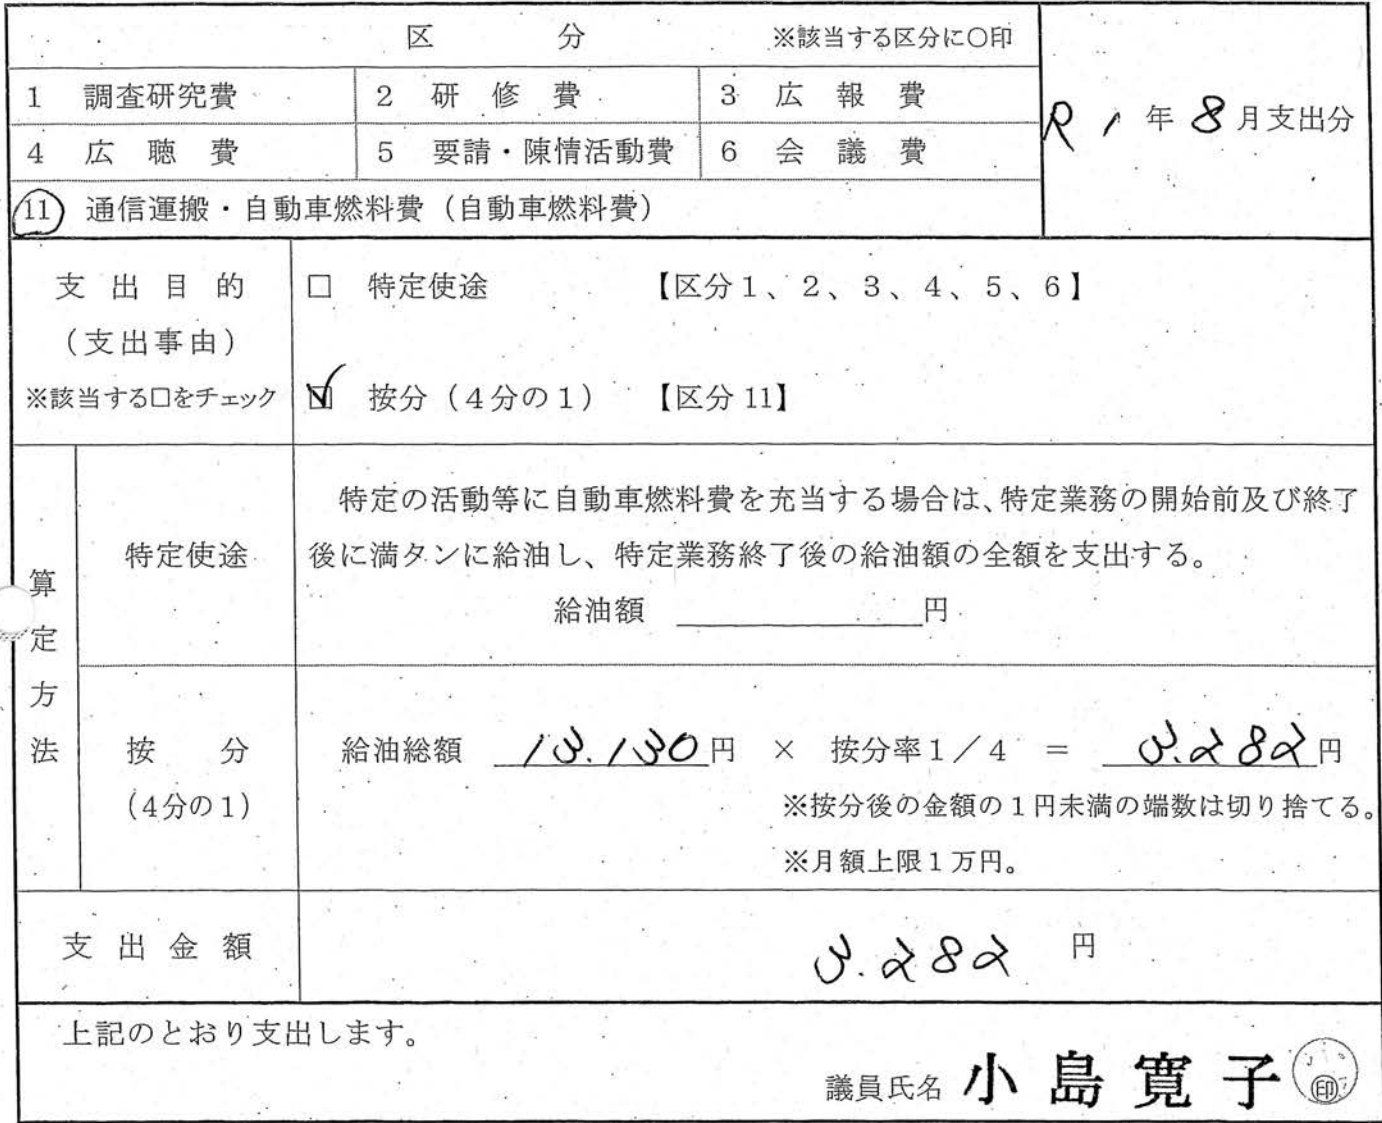 区　　　　分　　　　※該当する区分に〇印
1　調査研究費　2　研　修　費　3　広　報　費
R 1 年 8 月支出分
4　広　聴　費　5　要請・陳情活動費　6　会　議　費
11　通信運搬・自動車燃料費（自動車燃料費）
支　出　目　的
（支出事由）
※該当する□をチェック
□　特定使途　【区分１、２、３、４、５、６】
☑　按分（４分の１）　【区分 11】
算定方法
特定使途
特定の活動等に自動車燃料費を充当する場合は、特定業務の開始前及び終了
後に満タンに給油し、特定業務終了後の給油額の全額を支出する。
給油額　　　　　円
按　　分
（4分の1）
給油総額　13.130円　×　按分率１／４　＝　3.282円
※按分後の金額の１円未満の端数は切り捨てる。
※月額上限１万円。
支　出　金　額　3.282　円
上記のとおり支出します。
議員氏名　小島寛子　㊞